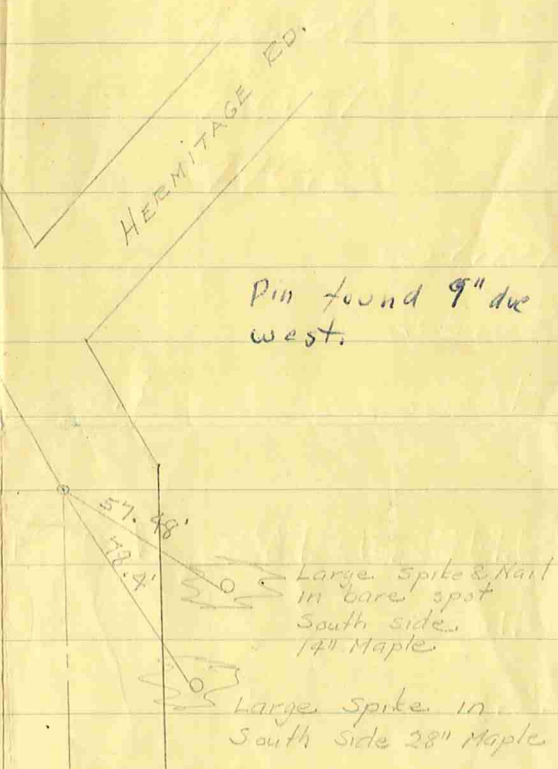 HERMITAGE RD.
Pin found 9" due
west.
57.48'
78.4'
Large Spike & Nail
in bare spot
South side
14" Maple
Large Spike in
South Side 28" Maple